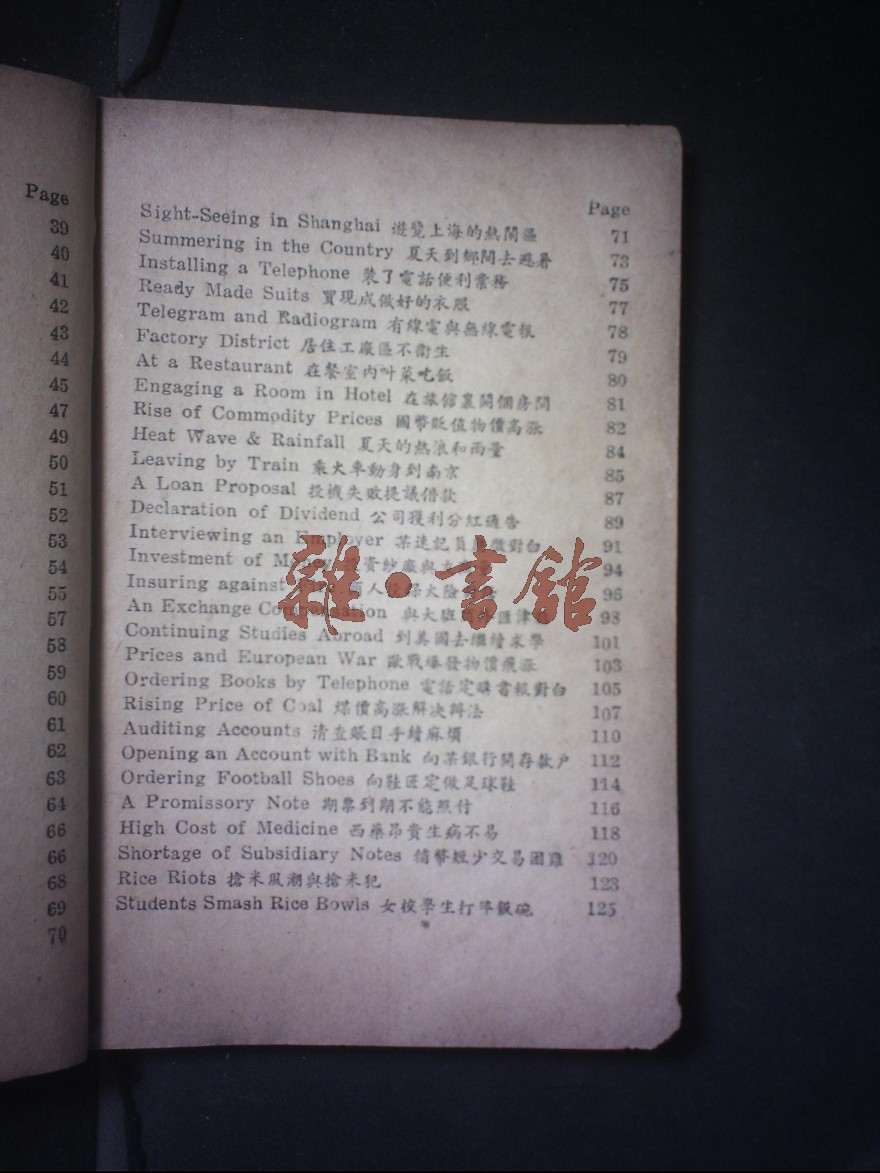 Page
39
40
41
42
43
44
45
47
49
50
51
52
53
54
55
57
58
59
60
61
62
63
64
66
66
68
69
70
Page
Sight-Seeing in Shanghai 遊覽上海的熱鬧區 71
Summering in the Country 夏天到鄉間去避暑 73
Installing a Telephone 裝了電話便利業務 75
Ready Made Suits 買現成做好的衣服 77
Telegram and Radiogram 有線電與無線電報 78
Factory District 居住工廠區不衞生 79
At a Restaurant 在餐室內叫菜吃飯 80
Engaging a Room in Hotel 在旅館裏開個房間 81
Rise of Commodity Prices 國幣貶值物價高漲 82
Heat Wave & Rainfall 夏天的熱浪和雨量 84
Leaving by Train 乘火車動身到南京 85
A Loan Proposal 投機失敗提議借款 87
Declaration of Dividend 公司獲利分紅通告 89
Interviewing an Employer 某速記員 對白 91
Investment of Money 資紗廠與 94
Insuring against 商人 保火險 96
An Exchange Compensation 與大班 匯津 98
Continuing Studies Abroad 到美國去繼續求學 101
Prices and European War 歐戰爆發物價飛漲 103
Ordering Books by Telephone 電話定購書報對白 105
Rising Price of Coal 煤價高漲解决辦法 107
Auditing Accounts 清查賬目手續麻煩 110
Opening an Account with Bank 向某銀行開存款户 112
Ordering Football Shoes 向鞋匠定做足球鞋 114
A Promissory Note 期票到期不能照付 116
High Cost of Medicine 西藥昂貴生病不易 118
Shortage of Subsidiary Notes 輔幣短少交易困難 120
Rice Riots 搶米風潮與搶米犯 123
Students Smash Rice Bowls 女校學生打碎飯碗 125
雜·書館